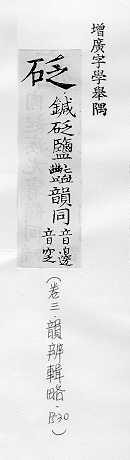 增廣字學舉隅
砭
鍼砭鹽豔韻同
音邊
音窆
(卷三·韻辨輯略·)